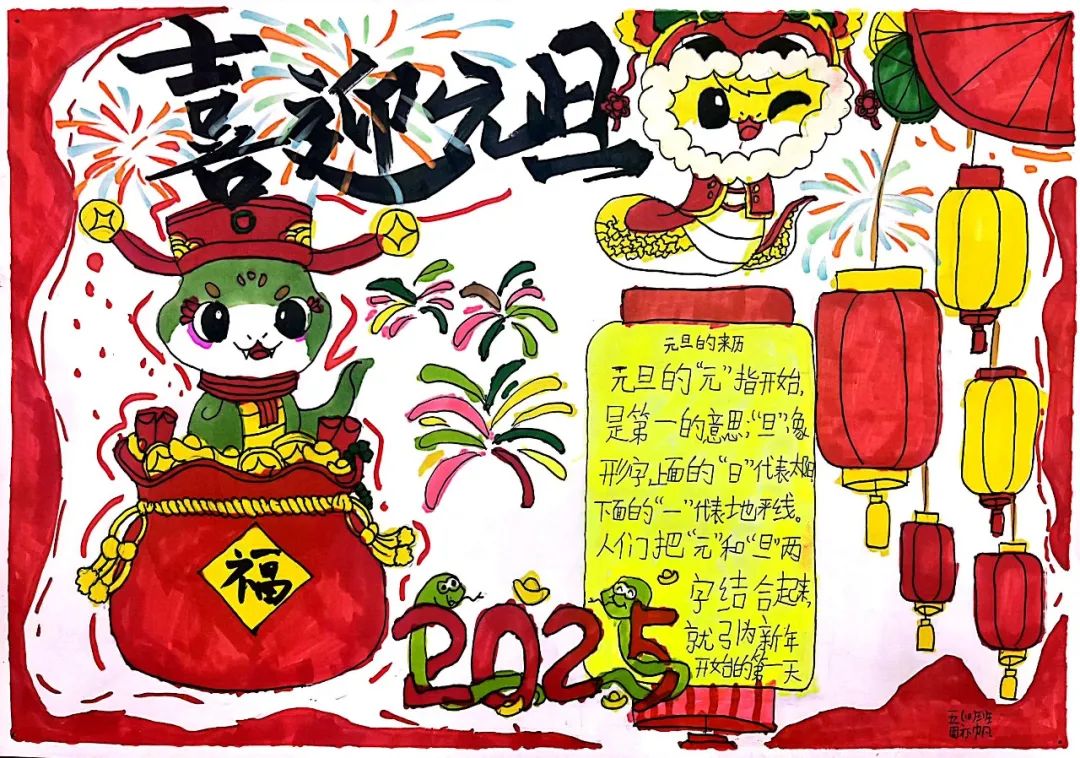 喜迎元旦
福
元旦的来历
元旦的“元”指开始,
是第一的意思;“旦”象
形字上面的“日”代表太阳
下面的“一”代表地平线。
人们把“元”和“旦”两
字结合起来,
就引内新年
开始的第一天
2025